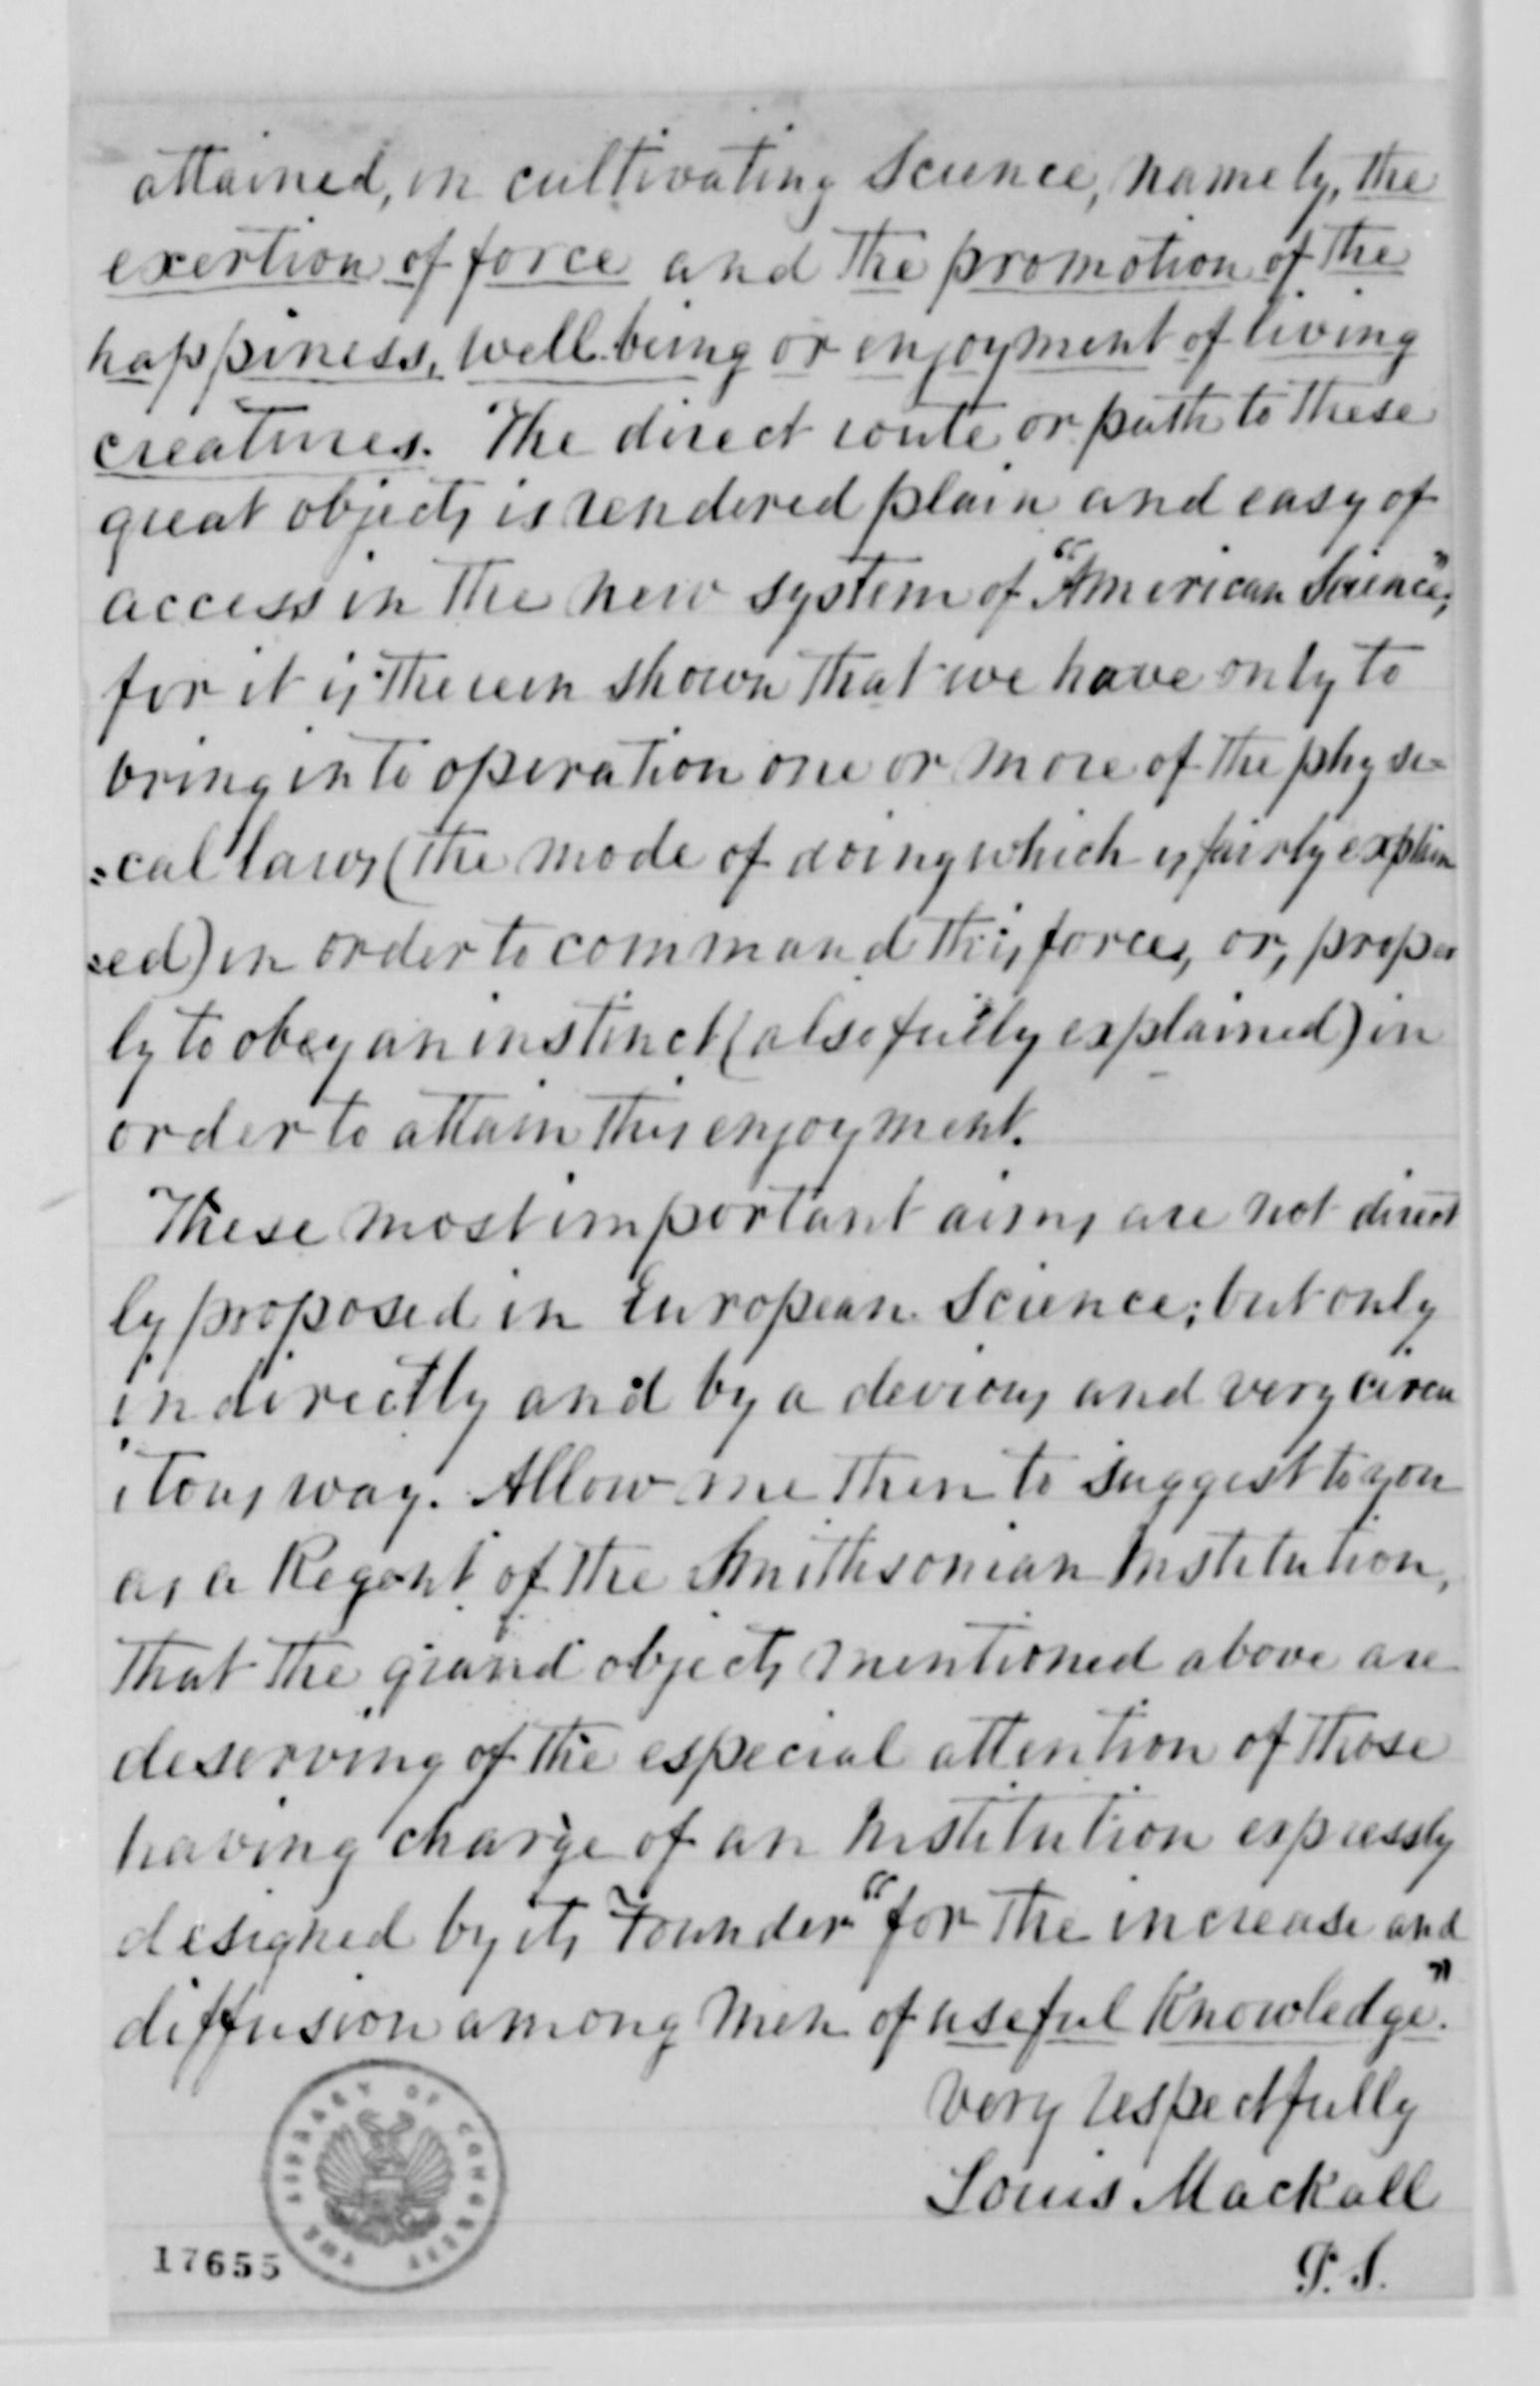 attained, in cultivating Science, namely, the
exertion of force and the promotion of the
happiness, well being or enjoyment of living
creatures. The direct route or path to these
great objects is rendered plain and easy of
access in the new system of "American Science",
for it is therein shown that we have only to
bring into operation one or more of the physi-
=cal laws (the mode of doing which is fairly explain
=ed) in order to command this force, or, proper
ly to obey an instinct (also fully explained) in
order to attain this enjoyment.
These most important aims are not direct
ly proposed in European Science; but only
indirectly and by a devious and very circu
itous way. Allow me then to suggest to you
as a Regent of the Smithsonian Institution,
that the grand objects mentioned above are
deserving of the especial attention of those
having charge of an Institution expressly
designed by its Founder "for the increase and
diffusion among men of useful Knowledge".
Very respectfully
Louis Mackall
P.S.
THE LIBRARY OF CONGRESS
17655